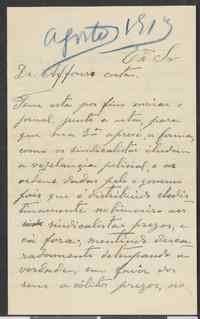 agosto 1913
Ex.mo Sr
Dr. Affonso Costa.
Tem esta por fim enviar o
jornal, junto a esta, para
que sua Ex.ª aprecie a forma
como os sindicalistas illudem
a vigilancia policial, e as
ordens dadas pelo governo
pois que é distribuido clandes-
tinamente no limoeiro aos
sindicalistas prezos, e
cá fora, mentindo desca-
radamente deturpando a
verdade, em favor dos
seus acolitos prezos, no